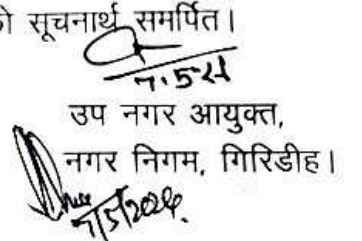 को सूचनार्थ समर्पित।
7.5.24
उप नगर आयुक्त,
नगर निगम, गिरिडीह।
7/5/2024